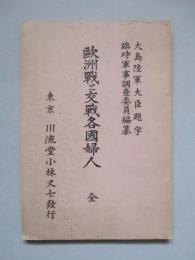 大島陸軍大臣題字
臨時軍事調査委員編纂
歐洲戰と交戰各國婦人 全
東京 川流堂小林又七發行